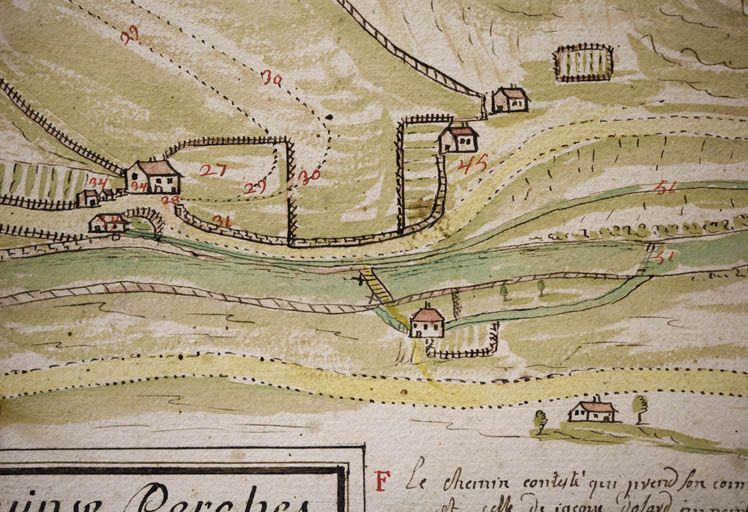 29
30
27
34
34
29
30
28
31
45
51
51
Perches
F Le chemin contesté qui prend son com
et celle de jacque